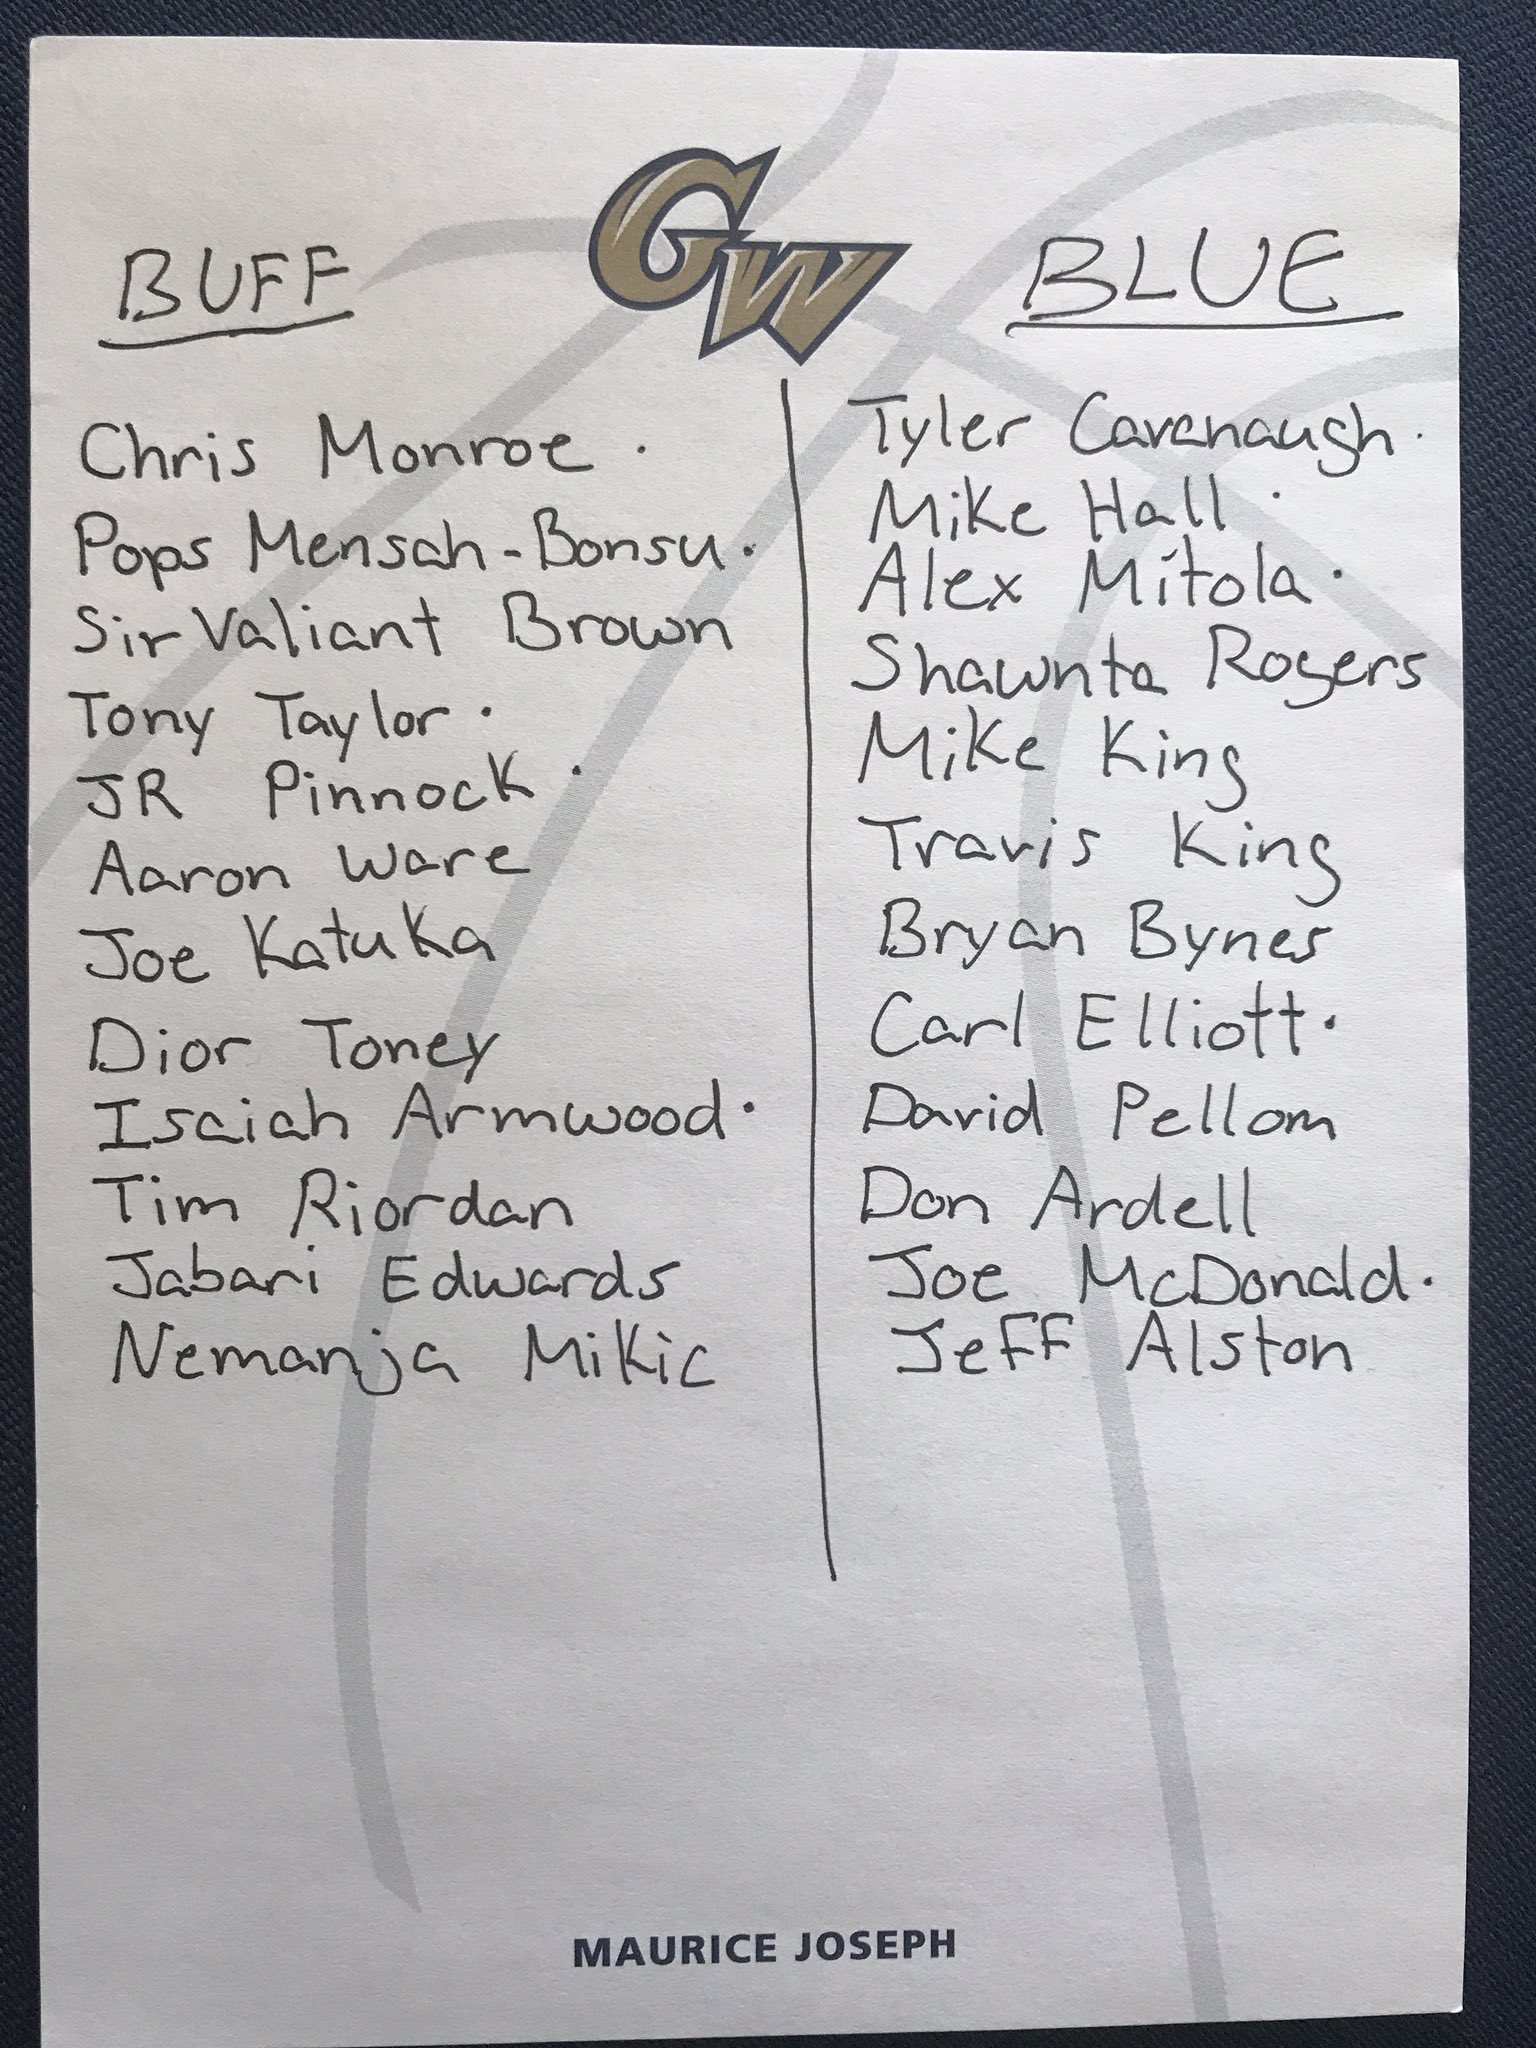 GW
BUFF
Chris Monroe .
Pops Mensah-Bonsu.
Sir Valiant Brown
Tony Taylor.
JR Pinnock .
Aaron Ware
Joe Katuka
Dior Toney
Isaiah Armwood.
Tim Riordan
Jabari Edwards
Nemanja Mikic
BLUE
Tyler Cavanaugh.
Mike Hall .
Alex Mitola.
Shawnta Rogers
Mike King
Travis King
Bryan Bynes
Carl Elliott.
David Pellom
Don Ardell
Joe McDonald.
Jeff Alston
MAURICE JOSEPH